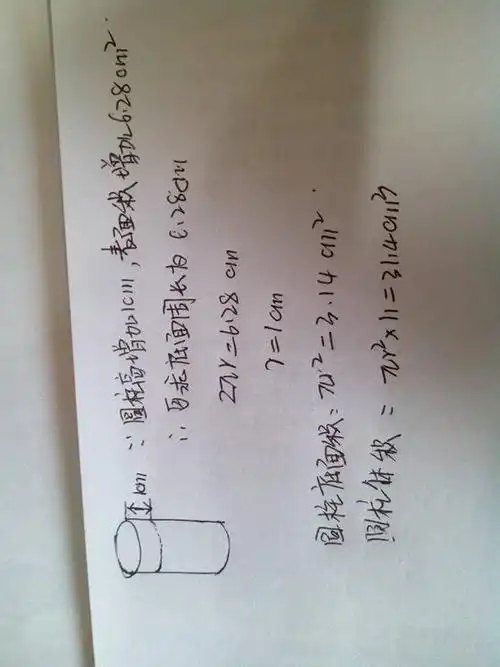 ∵圆柱高增加1cm,表面积增加6.28cm².
∴圆柱底面周长为6.28cm
2πr=6.28cm
r=1cm
圆柱底面积=πr²=3.14cm².
圆柱体积=πr²×11=31.4cm3
1cm